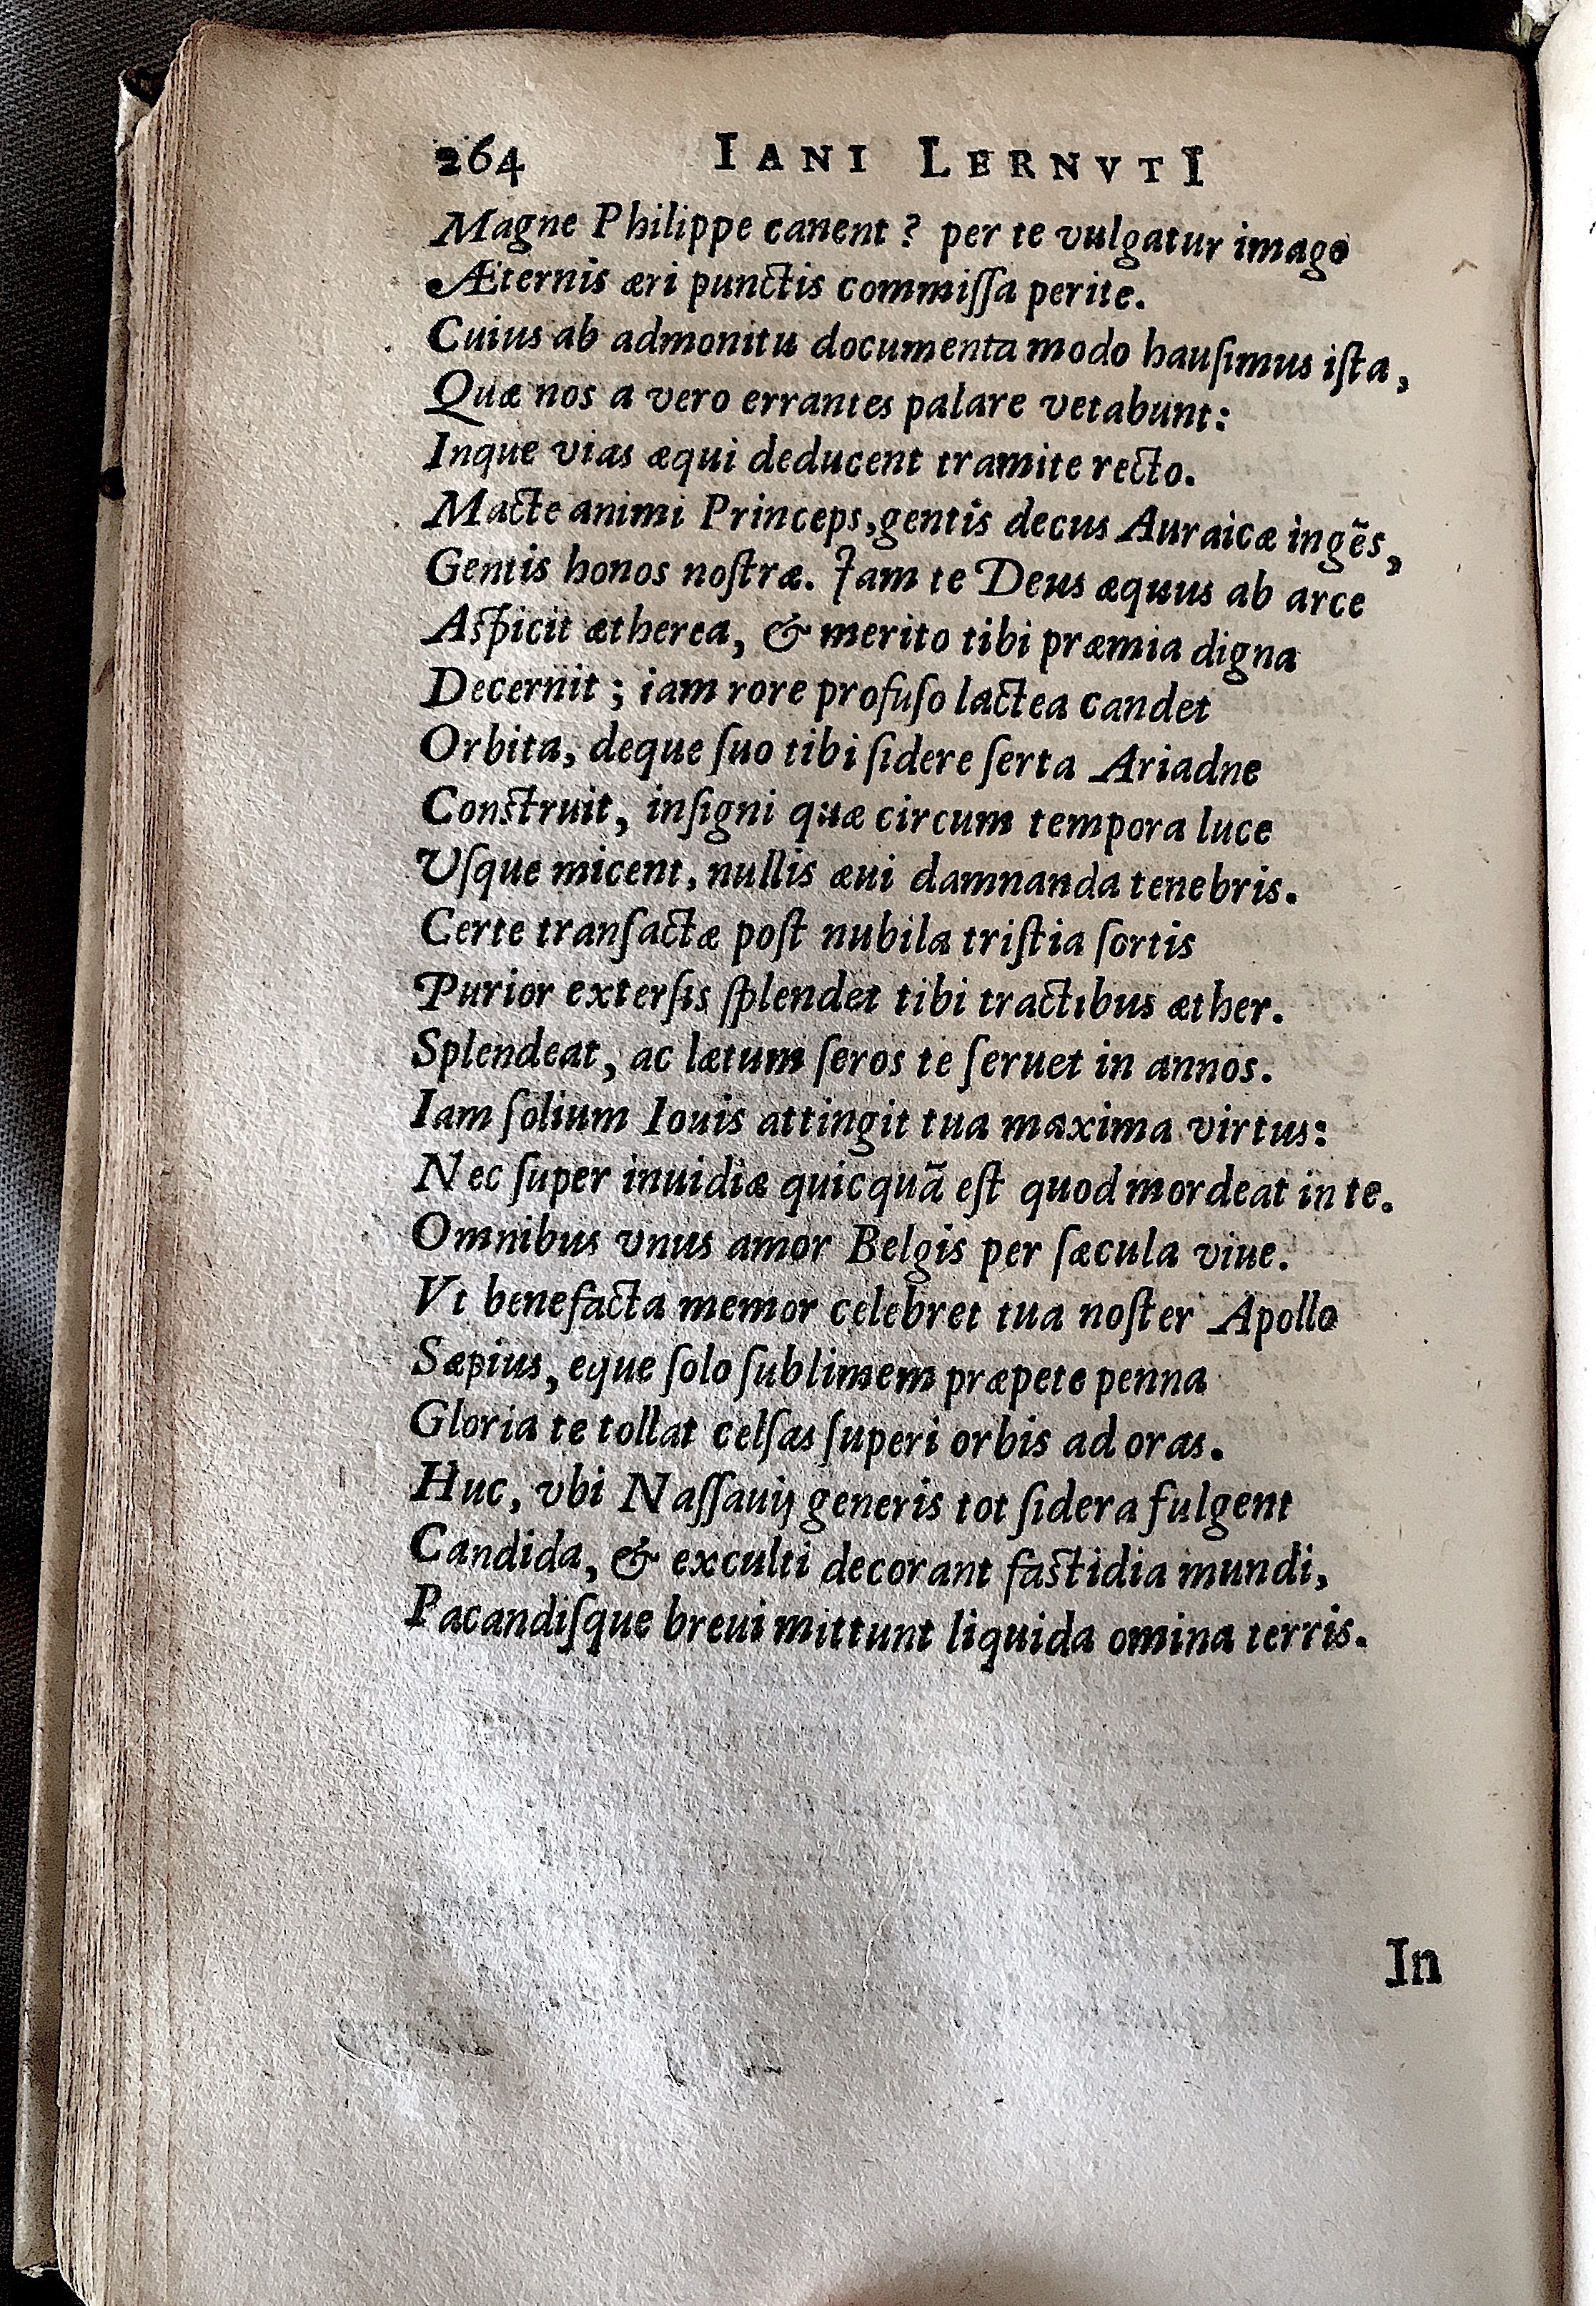 264 IANI LERNVTI
Magne Philippe canent ? per te vulgatur imago
Æternis æri punctis commiſſa perite.
Cuius ab admonitu documenta modo hauſimus iſta,
Quæ nos a vero errantes palare vetabunt:
Inque vias æqui deducent tramite recto.
Macte animi Princeps, gentis decus Auraicæ ingẽs,
Gentis honos noſtræ. Jam te Deus æquus ab arce
Aſpicit ætherea, & merito tibi præmia digna
Decernit ; iam rore profuſo lactea candet
Orbita, deque ſuo tibi ſidere ſerta Ariadne
Conſtruit, inſigni quæ circum tempora luce
Uſque micent, nullis æui damnanda tenebris.
Certe tranſactæ poſt nubila triſtia ſortis
Purior exterſis ſplendet tibi tractibus æther.
Splendeat, ac lætum ſeros te ſeruet in annos.
Iam ſolium Iouis attingit tua maxima virtus:
Nec ſuper inuidiæ quicquã eſt quod mordeat in te.
Omnibus vnus amor Belgis per ſæcula viue.
Vt benefacta memor celebret tua noſter Apollo
Sæpius, eque ſolo ſublimem præpete penna
Gloria te tollat celſas ſuperi orbis ad oras.
Huc, vbi Naſſauij generis tot ſidera fulgent
Candida, & exculti decorant faſtidia mundi,
Pacandiſque breui mittunt liquida omina terris.
In